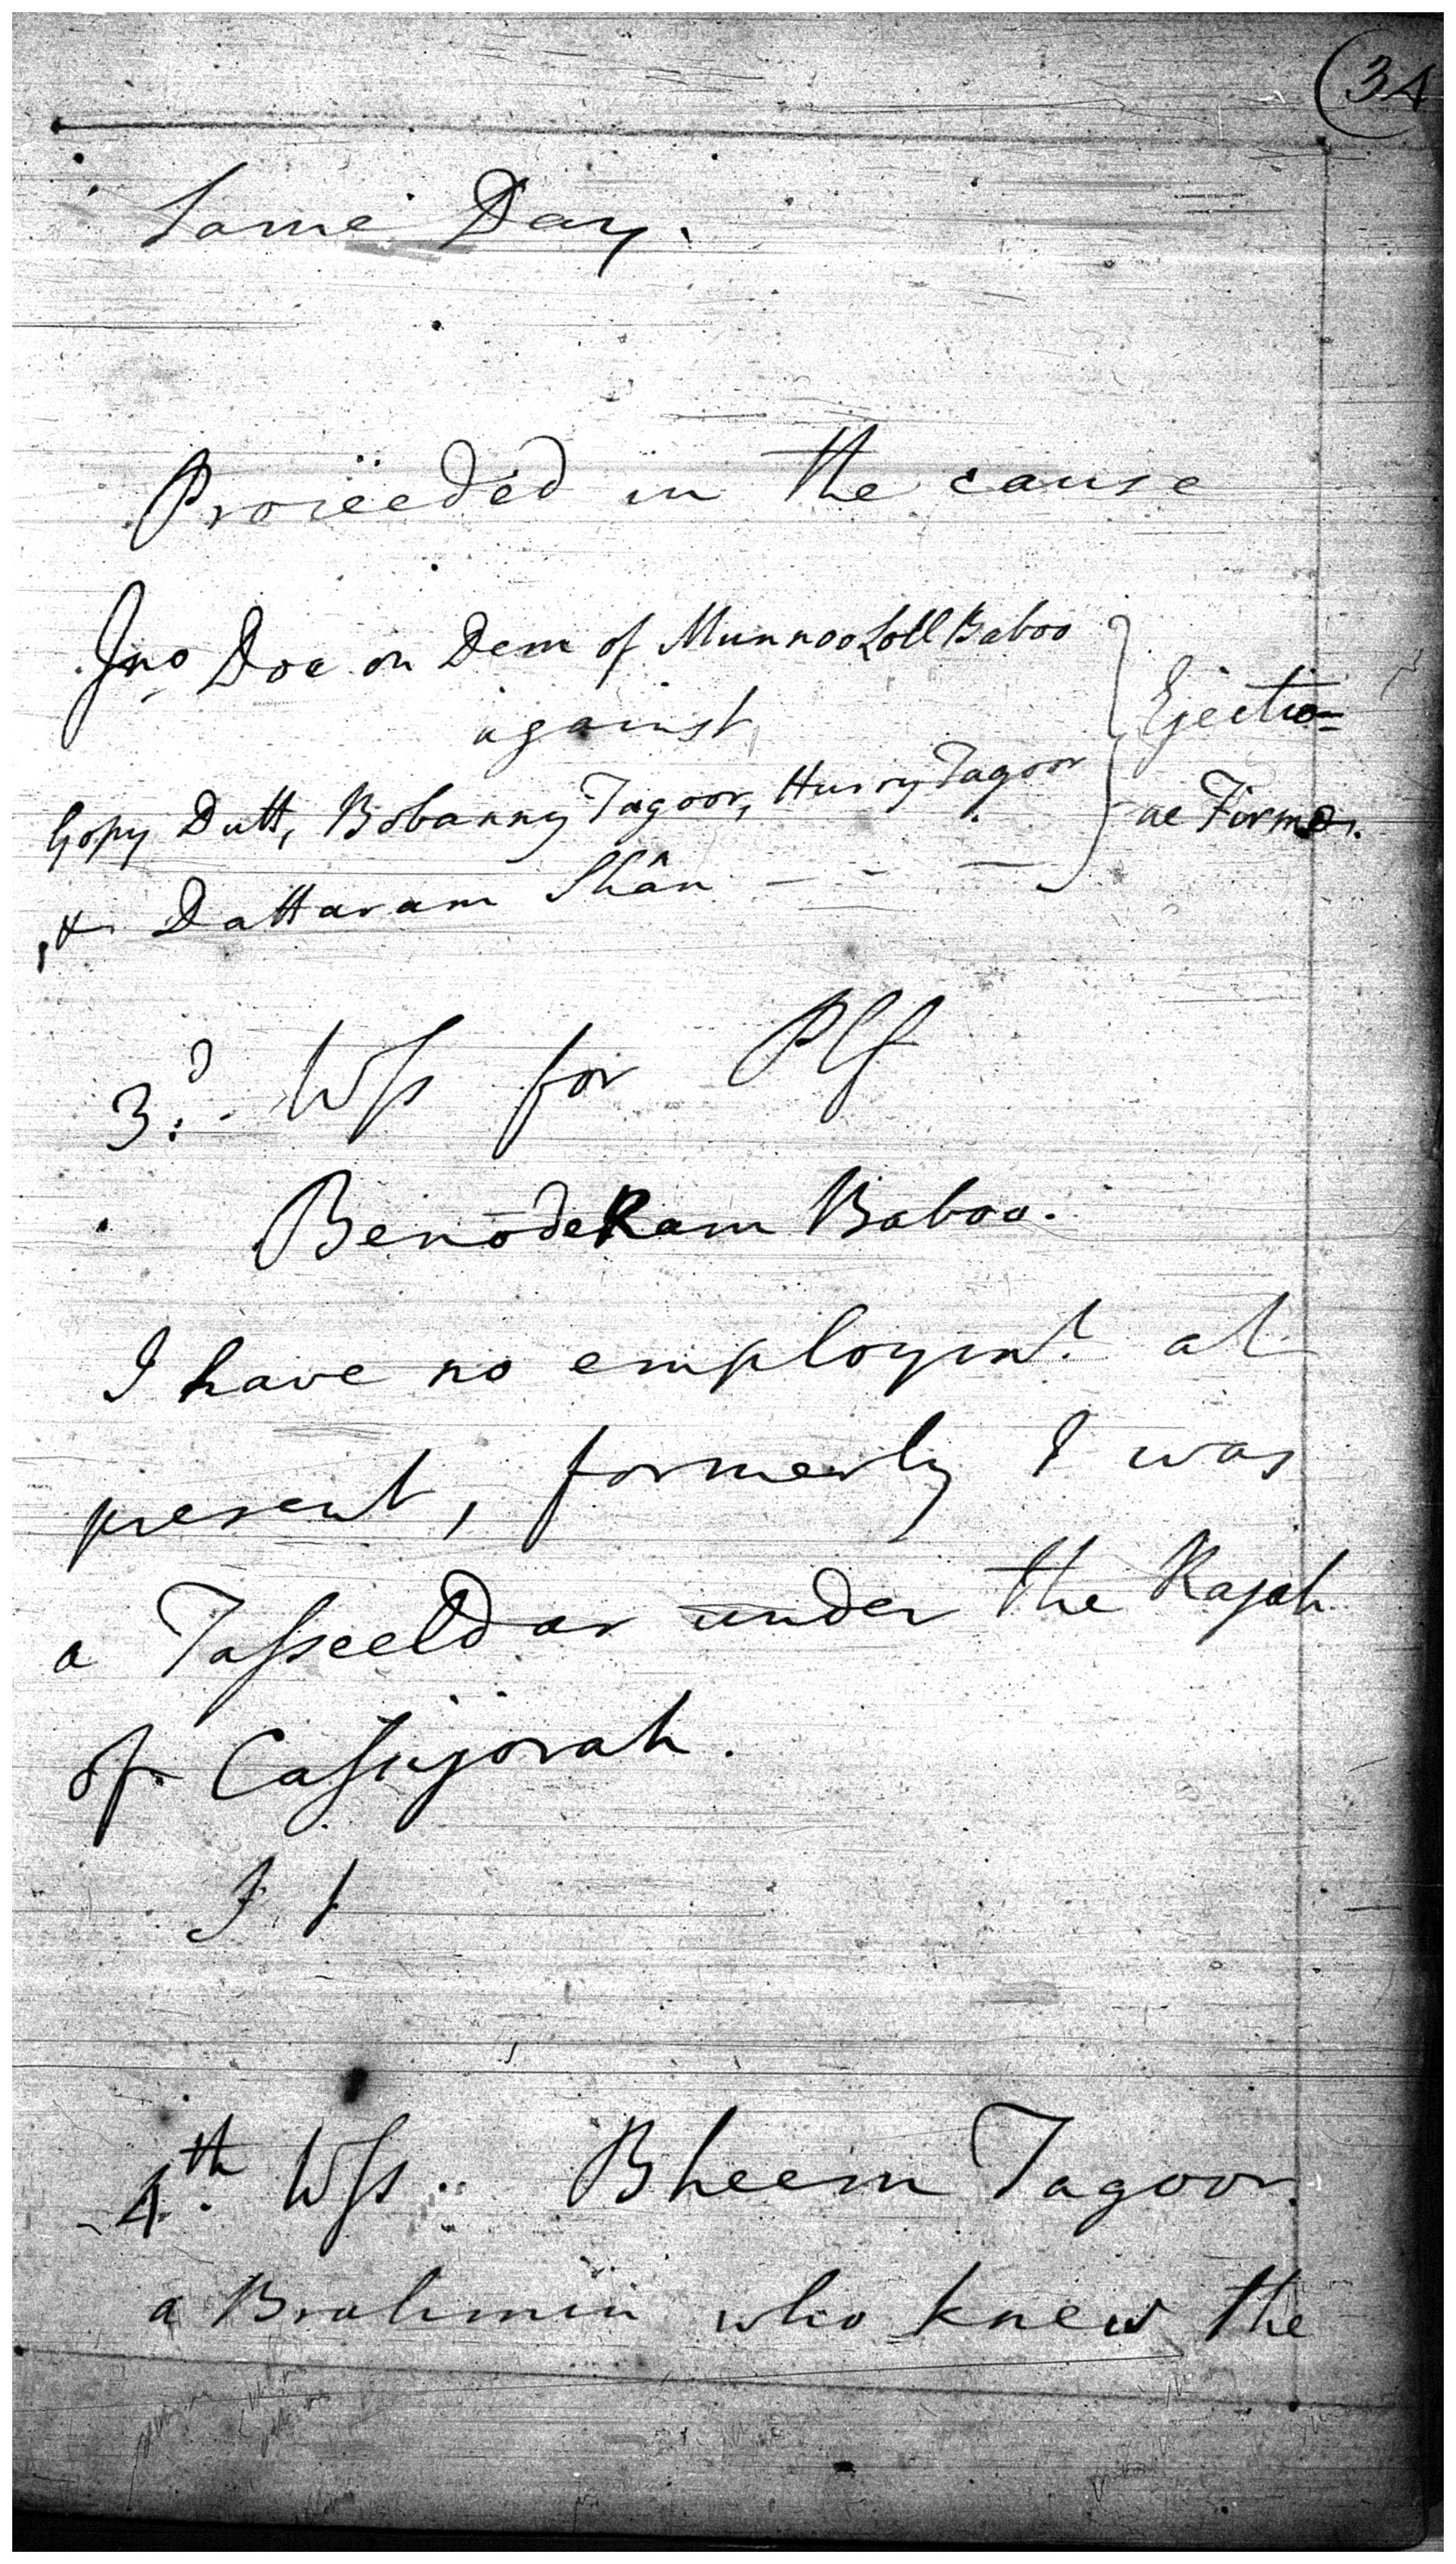 (34
Same Day.
Proceeded in the cause
Jno Doe on Dem of Munnoo Loll Baboo
against
Ejectio=
Gopy Dutt, Bobanny Tagoor, Hurry Tagoor
ne Firmæ.
& Dattaram Shân - - -
3.d Wss for Plf
BenodeRam Baboo.
I have no employmt. at
present, formerly I was
a Tasseeldar under the Rajah
of Cassijorah.
4th. Wss. Bheem Tagoor.
a Brahmin who knew the